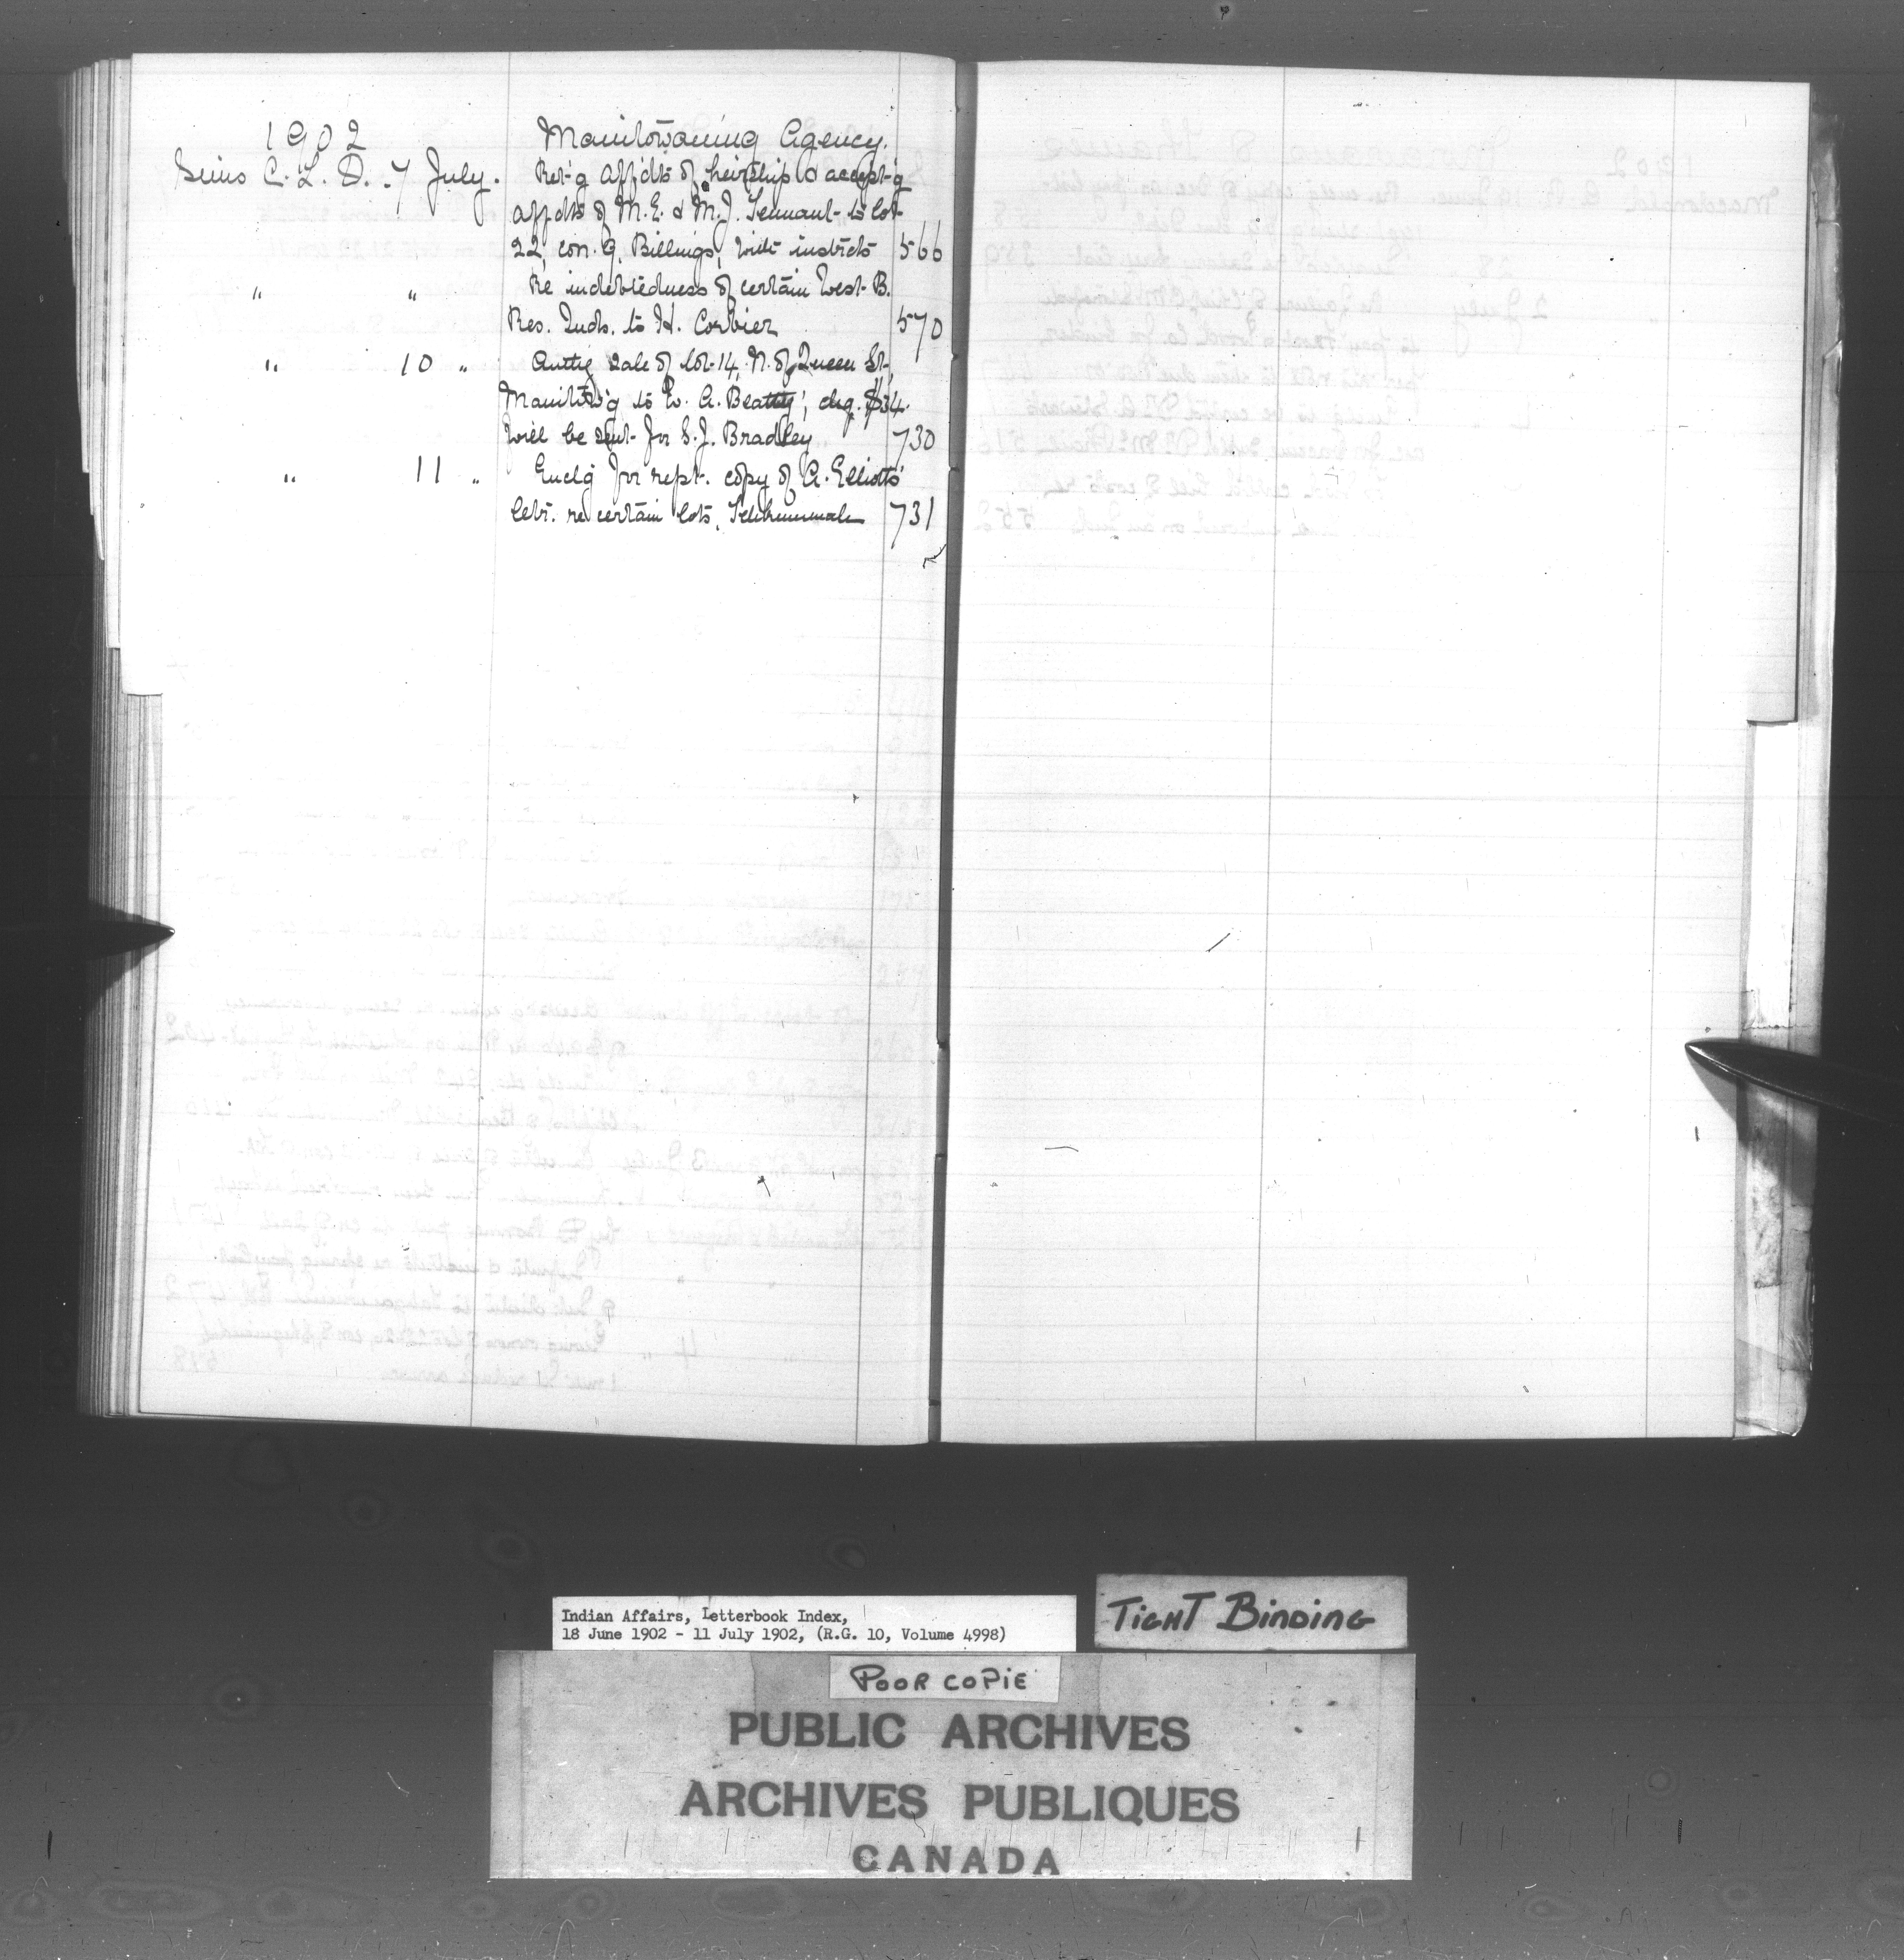 1902 Manitowaning Agency.
Sims C. L. D. 7 July. Ret-g affdts of heirship & accept-g
affdts of M. E. & M. J. Tennant to lot
22, con. 9, Billings, with instrcts 566
" " Re indebtedness of certain West B.
Res. Inds. to H. Corbier 570
" 10 " Authg sale of lot 14, N. of Queen St,
Manitow'g to W. A. Beatty; chq. $34.
will be sent for S. J. Bradley 730
" 11 " Enclg for rept. copy of A. Elliotts'
letr. re certain lots, Tehkummah 731
Indian Affairs, Letterbook Index,
18 June 1902 - 11 July 1902, (R.G. 10, Volume 4998)
TIGHT BINDING
POOR COPIE
PUBLIC ARCHIVES
ARCHIVES PUBLIQUES
CANADA